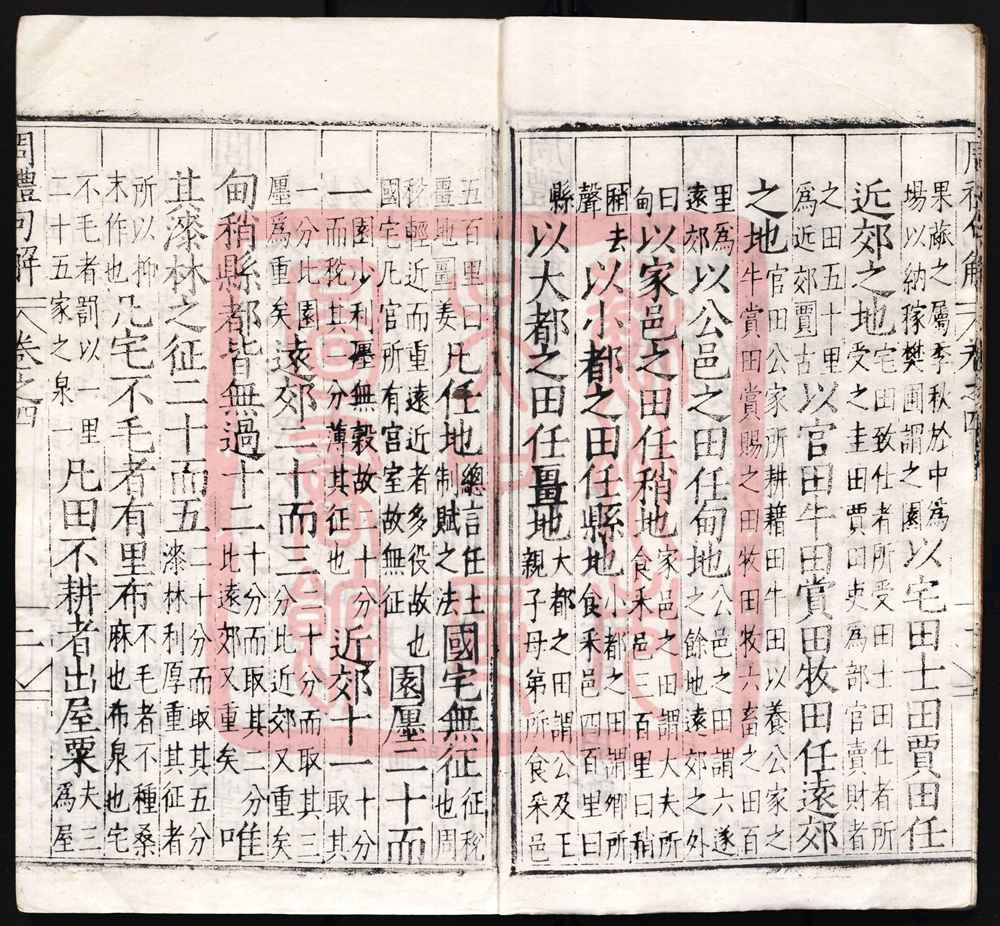 周禮句解 卷之四
果蓏之屬季秋於中爲場以納稼樊圃謂之園以宅田士田賈田任
近郊之地宅田致仕者所受田士田仕者所受之圭田賈田吏為部官賣財者
之田五十里為近郊賈古以官田牛田賞田牧田任遠郊
之地官田公家所耕藉田牛田以養公家之牛賞田賞賜之田牧田牧六畜之田百
里爲遠郊以公邑之田任甸地公邑之田謂六遂之餘地遠郊之外
曰甸以家邑之田任稍地家邑之田謂大夫所食采邑三百里曰稍
稍去聲以小都之田任縣地小都之田謂卿所食采邑四百里曰
縣以大都之田任畺地大都之田謂公及王親子母弟所食采邑
五百里曰畺地畺姜凡任地總言任土制賦之法國宅無征征稅也周
稅輕近而重遠近者多役故也國宅凡官所有宫室故無征園廛二十而
一園少利廛無穀故二十分而稅其一分薄其征也近郊十一十分取其
一分比園廛爲重矣遠郊二十而三二十分而取其三分比近郊又重矣
甸稍縣都皆無過十二十分而取其二分比遠郊又重矣唯
其漆林之征二十而五二十分而取其五分漆林利厚重其征者
所以抑末作也凡宅不毛者有里布不毛者不種桑麻也布泉也宅
不毛者罰以一里二十五家之泉凡田不耕者出屋粟一夫三爲屋
周禮句解 卷之四 二